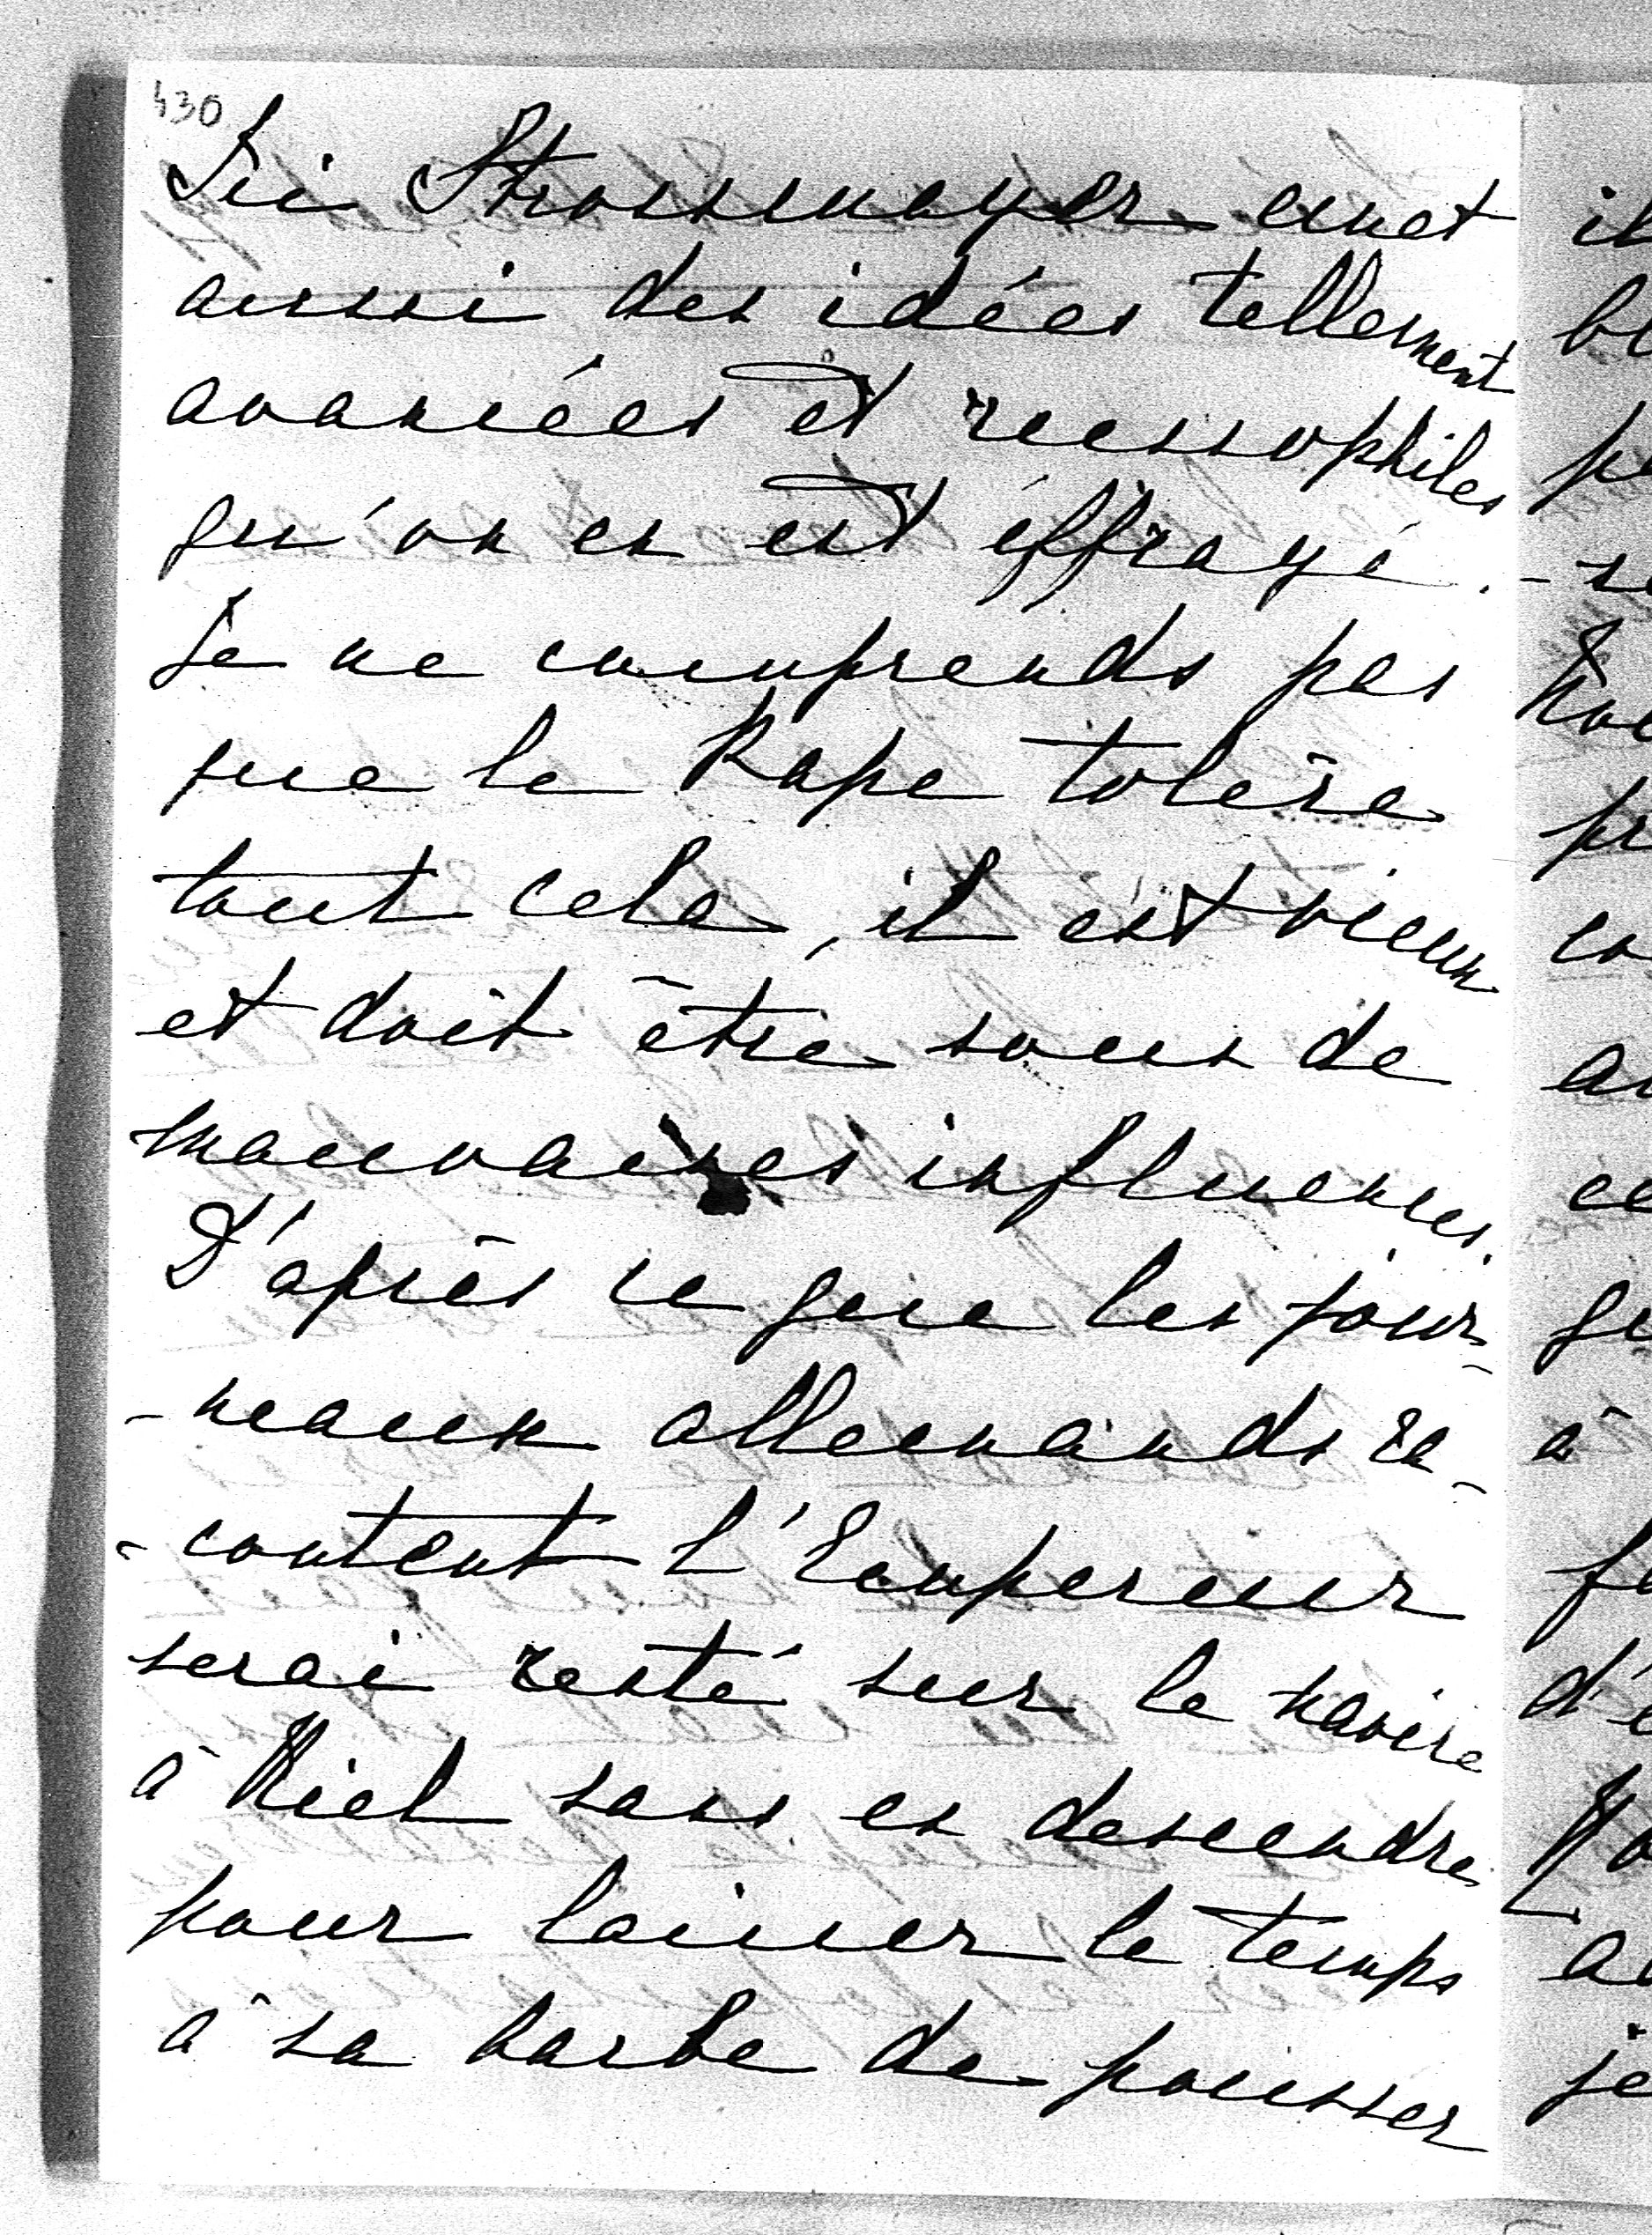 430
Ici Strossmayer émet
aussi des idées tellement
avancées et russophiles
qu'on en est éffrayé.
Je ne comprends pas
que le Pape tolère
tout cela, il est vieux
et doit être sous de
mauvaises influences.
D'après ce que les jour-
-naux allemands ra-
-content l'Empereur
serai resté sur le navire
à Kiel sans en descendre
pour laisser le temps
à sa barbe de pousser